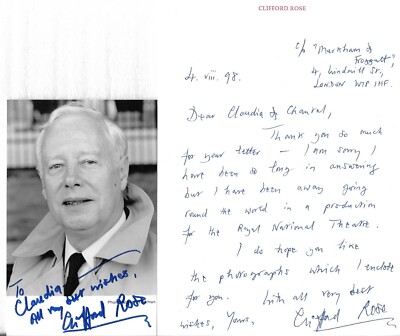 CLIFFORD ROSE
c/o "Markham &
Froggatt",
4, Windmill St,
London W1P 1HF.
4. viii. 98.
Dear Claudia & Chantal,
Thank you so much
for your letter – I am sorry I
have been so long in answering
but I have been away going
round the world in a production
for the Royal National Theatre.
I do hope you like
the photographs which I enclose
for you. With all very best
wishes, Yours,
Clifford Rose
To
Claudia
All my best wishes,
Clifford Rose